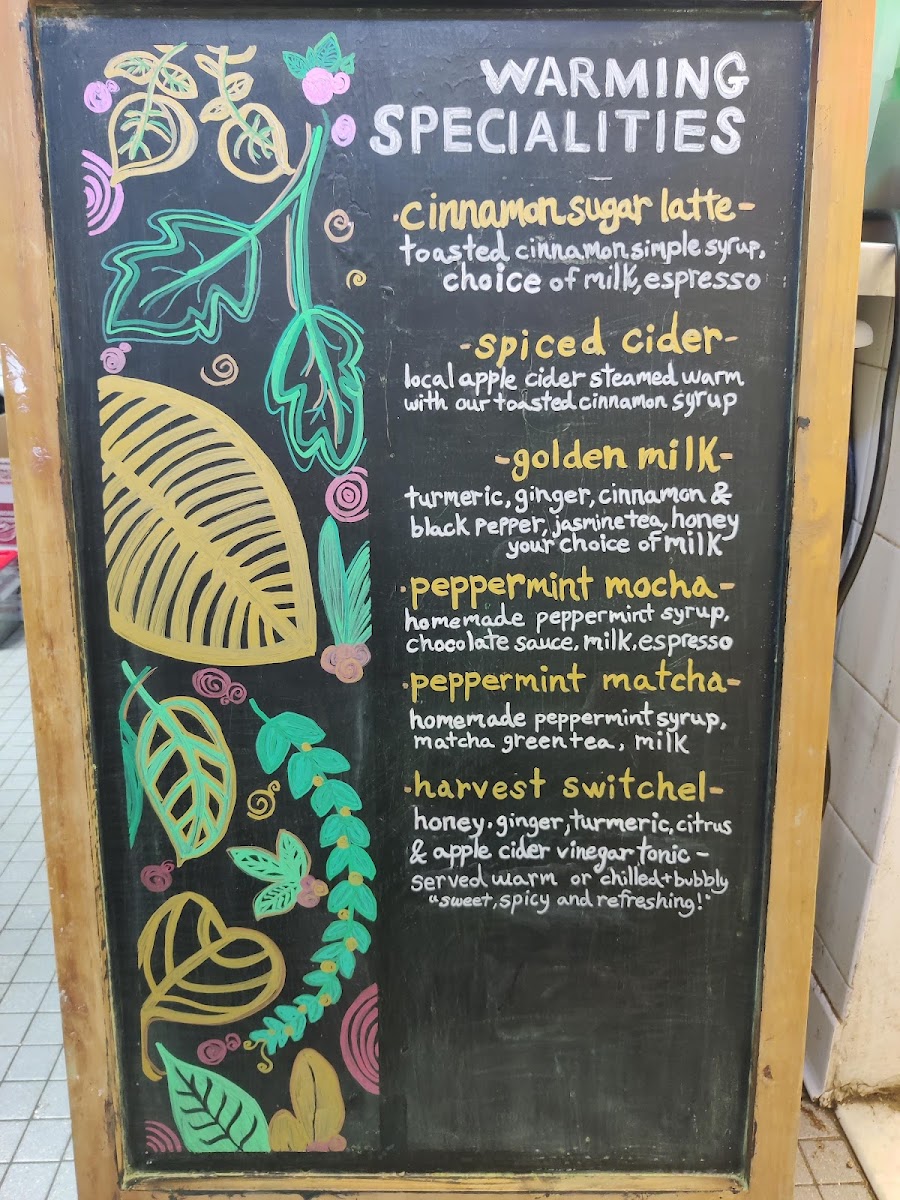 WARMING
SPECIALITIES
·cinnamon sugar latte-
toasted cinnamon simple syrup,
choice of milk, espresso
-spiced cider-
local apple cider steamed warm
with our toasted cinnamon syrup
-golden milk-
turmeric, ginger, cinnamon &
black pepper, jasmine tea, honey
your choice of milk
·peppermint mocha-
homemade peppermint syrup,
chocolate sauce, milk, espresso
·peppermint matcha-
homemade peppermint syrup,
matcha green tea, milk
·harvest switchel-
honey·ginger, turmeric, citrus
& apple cider vinegar tonic-
served warm or chilled+bubbly
"sweet, spicy and refreshing!"